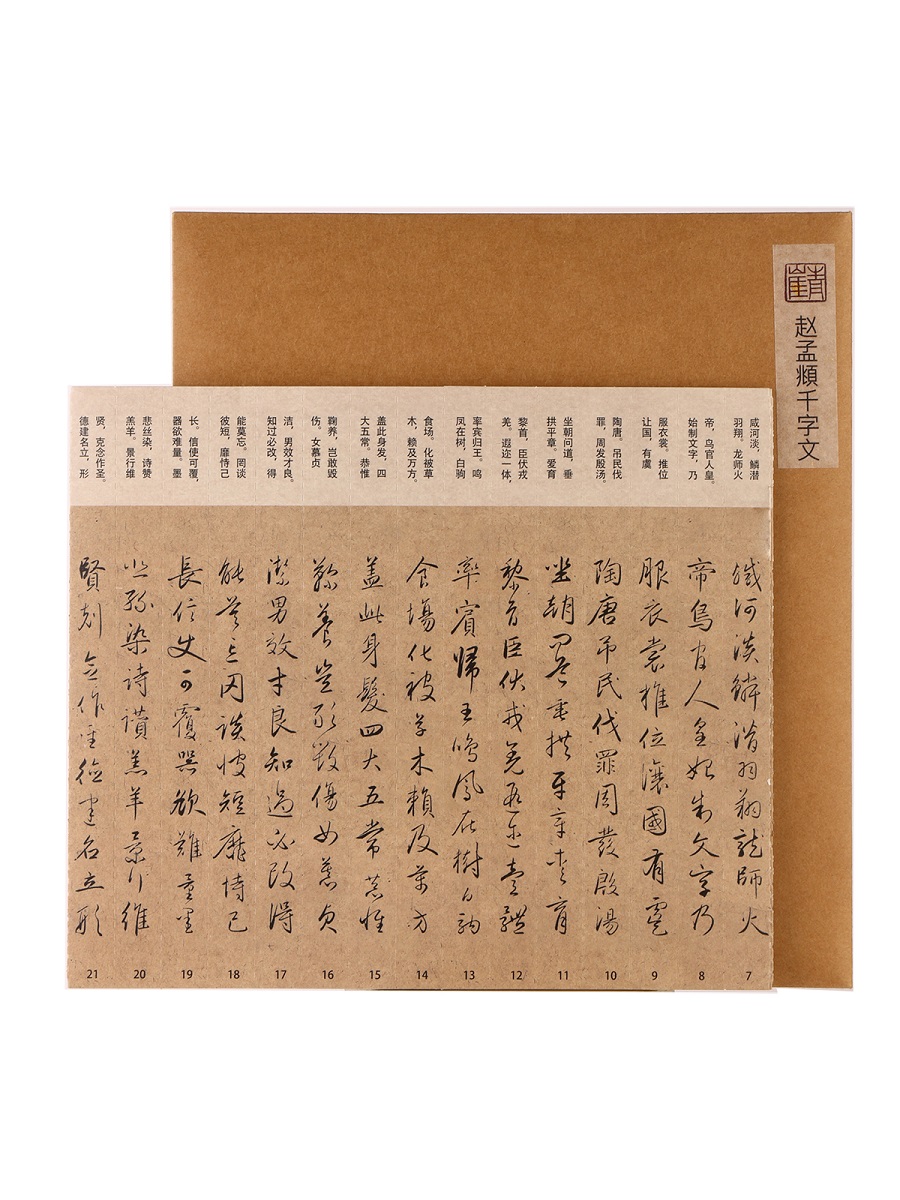 赵孟頫千字文
咸河淡，鳞潜
羽翔。龙师火
帝，鸟官人皇。
始制文字，乃
服衣裳。推位
让国，有虞
陶唐。吊民伐
罪，周发殷汤。
坐朝问道，垂
拱平章。爱育
黎首，臣伏戎
羌。遐迩一体，
率宾归王。鸣
凤在树，白驹
食场。化被草
木，赖及万方。
盖此身发，四
大五常。恭惟
鞠养，岂敢毁
伤。女慕贞
洁，男效才良。
知过必改，得
能莫忘。罔谈
彼短，靡恃己
长。信使可覆，
器欲难量。墨
悲丝染，诗赞
羔羊。景行维
贤，克念作圣。
德建名立，形
鹹河淡鱗潛羽翔龍師火
帝鳥官人皇始制文字乃
服衣裳推位讓國有虞
陶唐吊民伐罪周發殷湯
坐朝問道垂拱平章愛育
黎首臣伏戎羌遐邇壹體
率賓歸王鳴鳳在樹白駒
食場化被草木賴及萬方
蓋此身髮四大五常恭惟
鞠養豈敢毀傷女慕貞
潔男效才良知過必改得
能莫忘罔談彼短靡恃己
長信使可覆器欲難量墨
悲絲染詩讚羔羊景行維
賢剋念作聖德建名立形
7
8
9
10
11
12
13
14
15
16
17
18
19
20
21